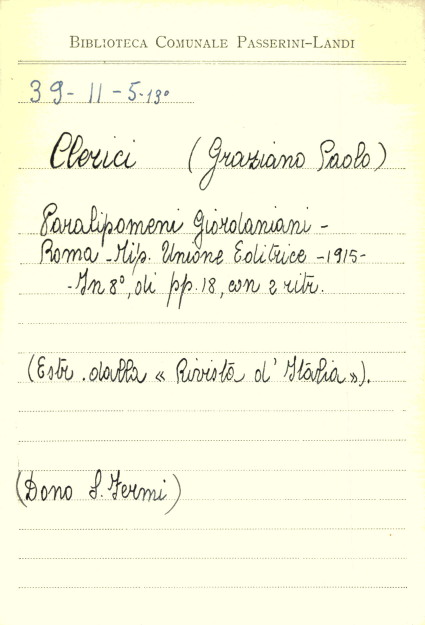 BIBLIOTECA COMUNALE PASSERINI-LANDI
39-11-5-13°
Clerici (Graziano Paolo)
Paralipomeni Giordaniani -
Roma - Tip. Unione Editrice - 1915 -
- In 8°, di pp. 18, con 2 ritr.
(Estr. dalla « Rivista d' Italia »).
(Dono S. Fermi)